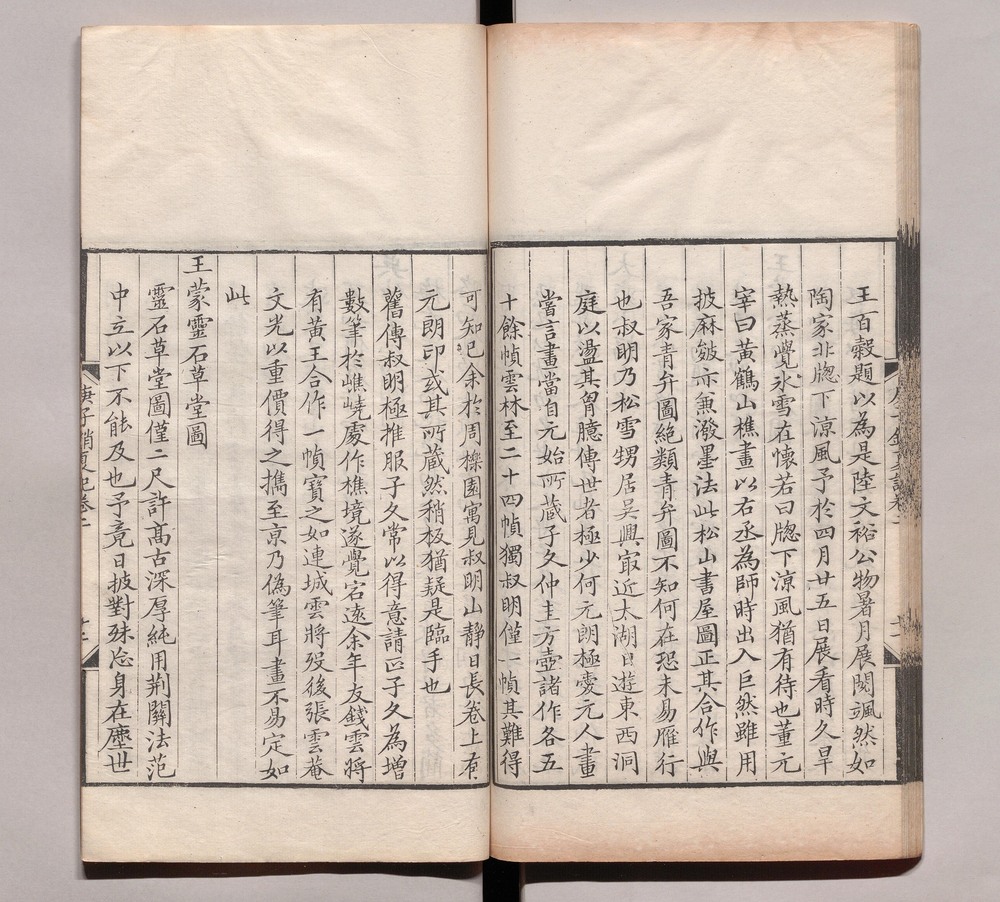 王百榖題以為是陸文裕公物暑月展閱颯然如
陶家北牕下涼風予於四月廿五日展看時久旱
熱蒸覺氷雪在懷若曰牕下涼風猶有待也董元
宰曰黃鶴山樵畫以右丞為師時出入巨然雖用
披麻皴亦兼潑墨法此松山書屋圖正其合作與
吾家青弁圖絕類青弁圖不知何在恐未易雁行
也叔明乃松雪甥居吳興㝡近太湖日遊東西洞
庭以盪其胷臆傳世者極少何元朗極愛元人畫
嘗言畫當自元始所蔵子久仲圭方壺諸作各五
十餘幀雲林至二十四幀獨叔明僅一幀其難得
可知已余於周櫟園寓見叔明山靜日長卷上有
元朗印或其所蔵然稍板猶疑是臨手也
舊傳叔明極推服子久常以得意請正子久為增
數筆於嶕嶢處作樵境遂覺宕遠余年友錢雲將
有黃王合作一幀寶之如連城雲將歿後張雲菴
文光以重價得之攜至京乃偽筆耳畫不易定如
此
王蒙靈石草堂圖
靈石草堂圖僅二尺許髙古深厚純用荆關法范
中立以下不能及也予竟日披對殊忩身在塵世
庚子銷夏記卷二
十二